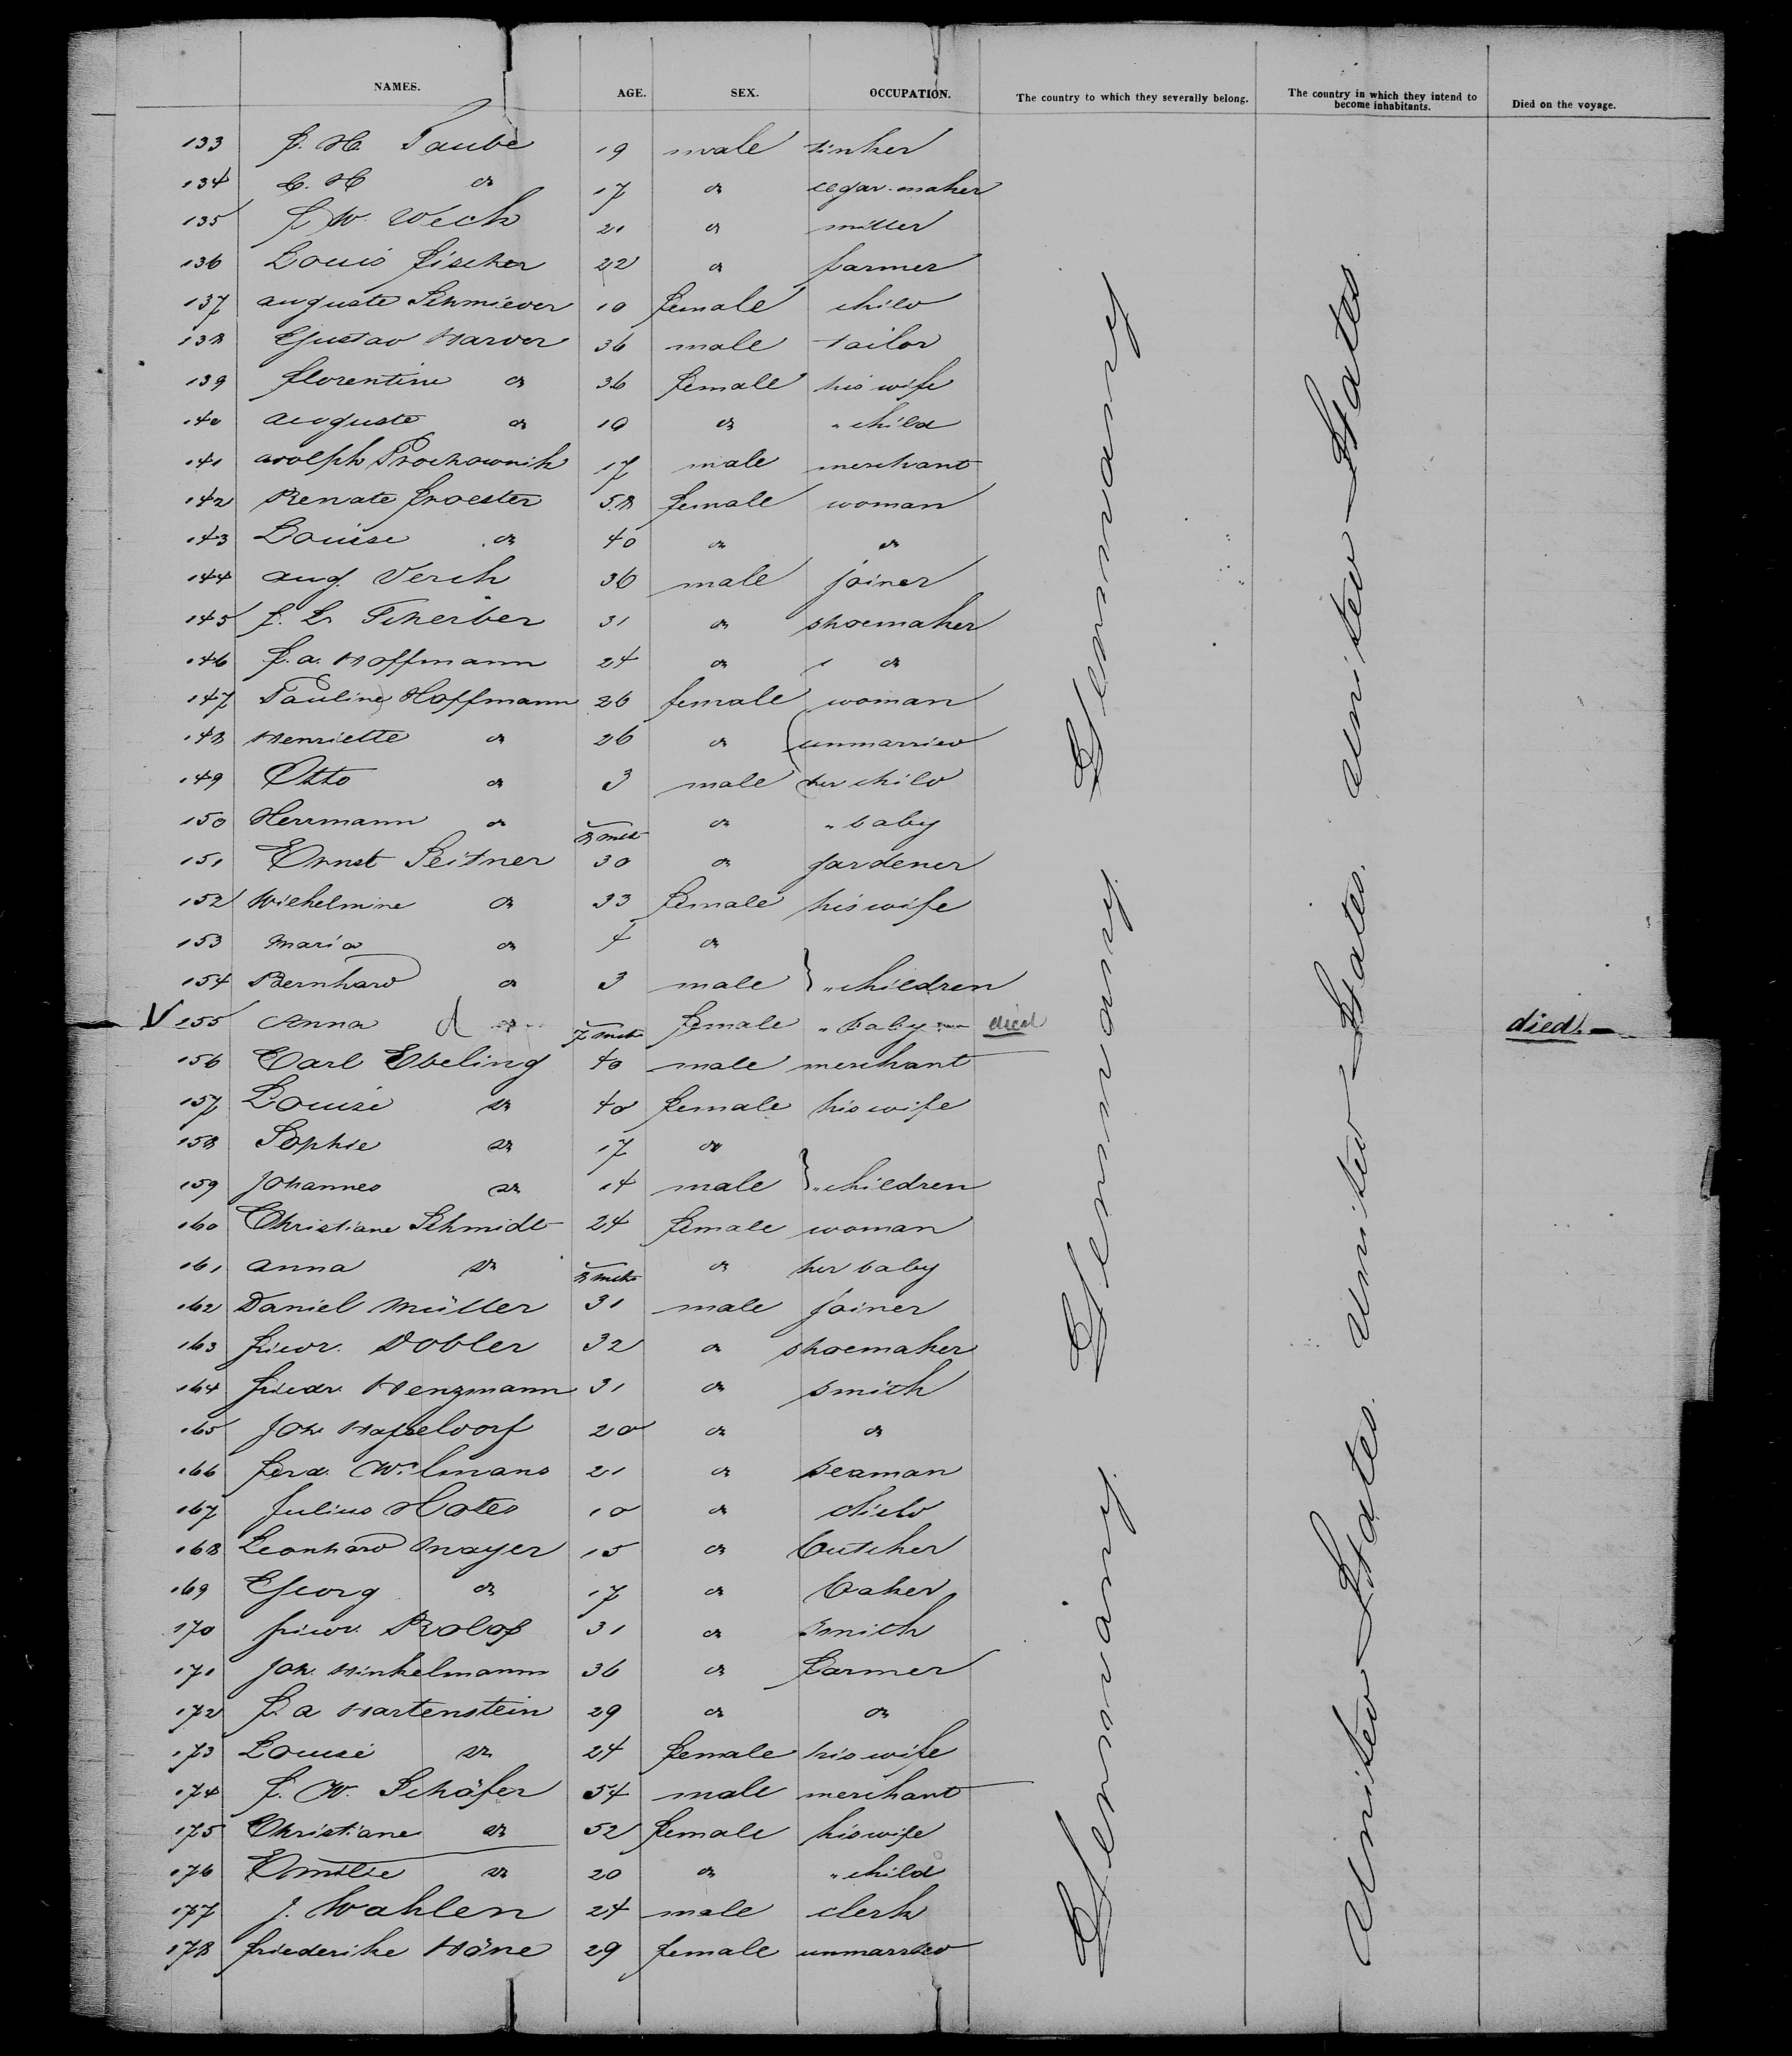 NAMES. AGE. SEX. OCCUPATION. The country to which they severally belong. The country in which they intend to become inhabitants. Died on the voyage.
133 F. H. Taube 19 male tinker
134 C. H do 17 do cegar-maker
135 F. W. Weck 21 do miller
136 Louis Fischer 22 do farmer
137 Auguste Schmieder 10 female child
138 Gustav Harder 36 male tailor
139 Florentine do 36 female his wife
140 Auguste do 10 do " child
141 Adolph Prochownik 17 male merchant
142 Renate Froester 58 female woman
143 Louise do 40 do do
144 Aug. Verch 36 male joiner
145 F. L. Scherber 31 do shoemaker
146 F. A. Hoffmann 24 do do
147 Pauline Hoffmann 26 female woman
148 Henriette do 26 do unmarried
149 Otto do 3 male her child
150 Herrmann do 8 mths do " baby
151 Ernst Leitner 30 do gardener
152 Wilhelmine do 33 female his wife
153 Maria do 4 do
154 Bernhard do 3 male } " children
155 Anna d do 7 mths female " baby died died.
156 Carl Ebeling 40 male merchant
157 Louise do 40 female his wife
158 Sophie do 17 do
159 Johannes do 14 male } " children
160 Christiane Schmidt 24 female woman
161 Anna do 8 mths do her baby
162 Daniel Müller 31 male joiner
163 Friedr. Dobler 32 do shoemaker
164 Friedr. Henzmann 31 do smith
165 Joh. Hasseldorf 20 do do
166 Ferd. Wilmans 21 do seaman
167 Julius Hotes 10 do child
168 Leonhard Mayer 15 do butcher
169 Georg do 17 do baker
170 Friedr. Rolof 31 do smith
171 Joh. Hinkelmann 36 do farmer
172 F. A Hartenstein 29 do do
173 Louise do 24 female his wife
174 F. W. Schäfer 54 male merchant
175 Christiane do 52 female his wife
176 Emilie do 20 do " child
177 J. Wahlen 24 male clerk
178 Friederike Höne 29 female unmarried
Germany
Germany.
Germany.
United States.
United States.
United States.